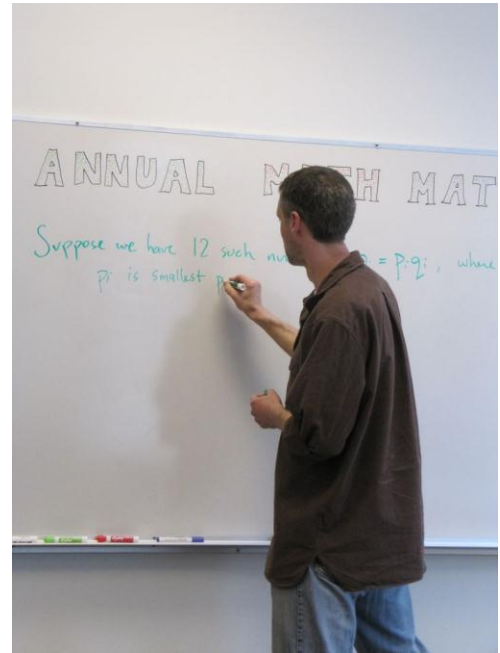 ANNUAL MATH MAT
Suppose we have 12 such = pᵢqᵢ, where
pᵢ is smallest